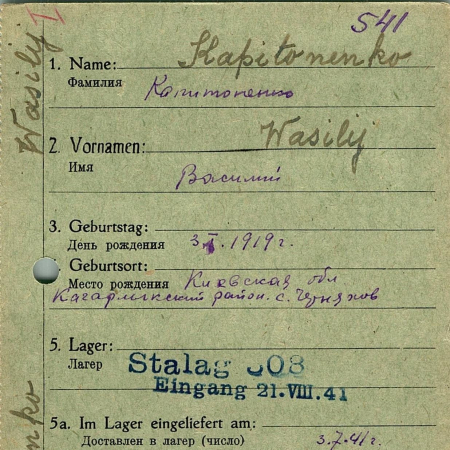 541
I
1. Name: Kapitonenko
Фамилия Капитоненко
2. Vornamen: Wasilij
Имя Василий
3. Geburtstag:
День рождения 3.I.1919 г.
Geburtsort:
Место рождения Киевская обл
Кагарлыкский район. с. Черняхов
5. Lager:
Лагер Stalag 308
Eingang 21.VIII.41
5a. Im Lager eingeliefert am:
Доставлен в лагер (число) 3.7.41 г.
Wasilij
nko